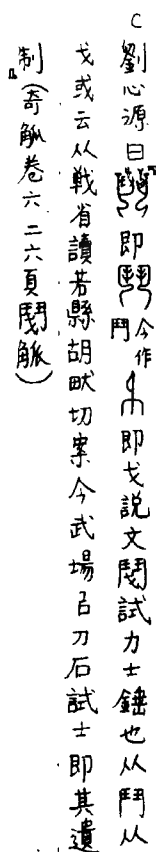 C 劉心源曰『即今作鬥即戈說文試力士錘也从鬥从
戈或云从戦省讀若縣胡畎切案今武場㠯刀石試士即其遺
制』(奇觚卷六二六頁觚)